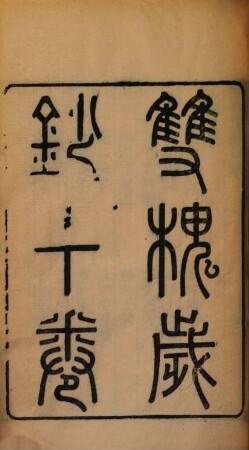 雙槐歲
鈔十卷